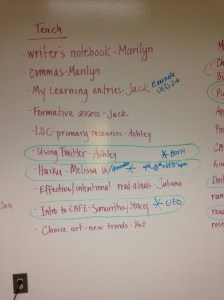 Teach
· writer's notebook - Marilyn
· commas - Marilyn
· My Learning entries - Jack Example
· Formative assess - Jack
· LDC - primary resources - Ashley
· Using Twitter - Ashley * BOTH
· Haiku - Melissa W *
· Effective/intentional read-alouds - Juliana
· Intro to CAFE - Samantha/Stacey * UFO
· Choice art - new trends - Kat